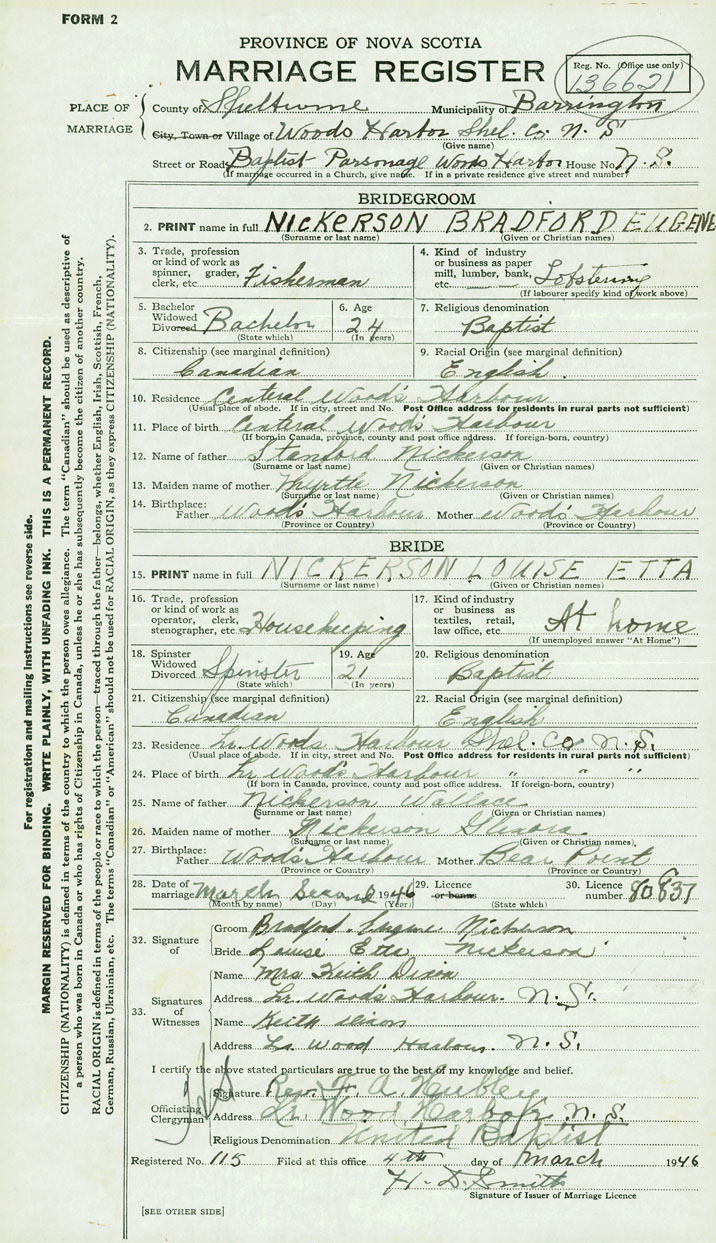 FORM 2
PROVINCE OF NOVA SCOTIA
MARRIAGE REGISTER
Reg. No. (Office use only)
136621
PLACE OF MARRIAGE
County of Shelburne Municipality of Barrington
City, Town or Village of Woods Harbor Shel. Co. N. S
(Give name)
Street or Road Baptist Parsonage Woods Harbor House No. N. S.
(If marriage occurred in a Church, give name. If in a private residence give street and number)
BRIDEGROOM
2. PRINT name in full NICKERSON BRADFORD EUGENE
(Surname or last name) (Given or Christian names)
3. Trade, profession or kind of work as spinner, grader, clerk, etc. Fisherman
4. Kind of industry or business as paper mill, lumber, bank, etc. Lobstering
(If labourer specify kind of work above)
5. Bachelor Widowed Divorced Bachelor
(State which)
6. Age 24
(In years)
7. Religious denomination
Baptist
8. Citizenship (see marginal definition)
Canadian
9. Racial Origin (see marginal definition)
English.
10. Residence Central Woods Harbour
(Usual place of abode. If in city, street and No. Post Office address for residents in rural parts not sufficient)
11. Place of birth Central Wood's Harbour
(If born in Canada, province, county and post office address. If foreign-born, country)
12. Name of father Stanford Nickerson
(Surname or last name) (Given or Christian names)
13. Maiden name of mother Myrtle Nickerson
(Surname or last name) (Given or Christian names)
14. Birthplace: Father Wood's Harbour Mother Wood's Harbour
(Province or Country) (Province or Country)
BRIDE
15. PRINT name in full NICKERSON LOUISE ETTA
(Surname or last name) (Given or Christian names)
16. Trade, profession or kind of work as operator, clerk, stenographer, etc. Housekeeping
17. Kind of industry or business as textiles, retail, law office, etc. At home
(If unemployed answer "At Home")
18. Spinster Widowed Divorced Spinster
(State which)
19. Age 21
(In years)
20. Religious denomination
Baptist
21. Citizenship (see marginal definition)
Canadian
22. Racial Origin (see marginal definition)
English
23. Residence Lr. Woods Harbour Shel. Co N. S.
(Usual place of abode. If in city, street and No. Post Office address for residents in rural parts not sufficient)
24. Place of birth Lr Wood's Harbour " " "
(If born in Canada, province, county and post office address. If foreign-born, country)
25. Name of father Nickerson Wallace
(Surname or last name) (Given or Christian names)
26. Maiden name of mother Nickerson Glenora
(Surname or last name) (Given or Christian names)
27. Birthplace: Father Wood's Harbour Mother Bear Point
(Province or Country) (Province or Country)
28. Date of marriage March Second 1946
(Month by name) (Day) (Year)
29. Licence or banns
(State which)
30. Licence number 80837
32. Signature of
Groom Bradford Eugene Nickerson
Bride Louise Etta Nickerson
33. Signatures of Witnesses
Name Mrs Keith Dixon
Address Lr. Wood's Harbour. N. S.
Name Keith Dixon
Address Lr Wood Harbour. N. S.
I certify the above stated particulars are true to the best of my knowledge and belief.
Officiating Clergyman
Signature Rev. A. Hubley
Address Lr. Wood Harbour N. S.
Religious Denomination United Baptist
Registered No. 115 Filed at this office 4th day of March 1946
H. D. Smith
Signature of Issuer of Marriage Licence
[SEE OTHER SIDE]
For registration and mailing instructions see reverse side.
MARGIN RESERVED FOR BINDING. WRITE PLAINLY, WITH UNFADING INK. THIS IS A PERMANENT RECORD.
CITIZENSHIP (NATIONALITY) is defined in terms of the country to which the person owes allegiance. The term "Canadian" should be used as descriptive of
a person who was born in Canada or who has rights of Citizenship in Canada, unless he or she has subsequently become the citizen of another country.
RACIAL ORIGIN is defined in terms of the people or race to which the person—traced through the father—belongs, whether English, Irish, Scottish, French,
German, Russian, Ukrainian, etc. The terms "Canadian" or "American" should not be used for RACIAL ORIGIN, as they express CITIZENSHIP (NATIONALITY).